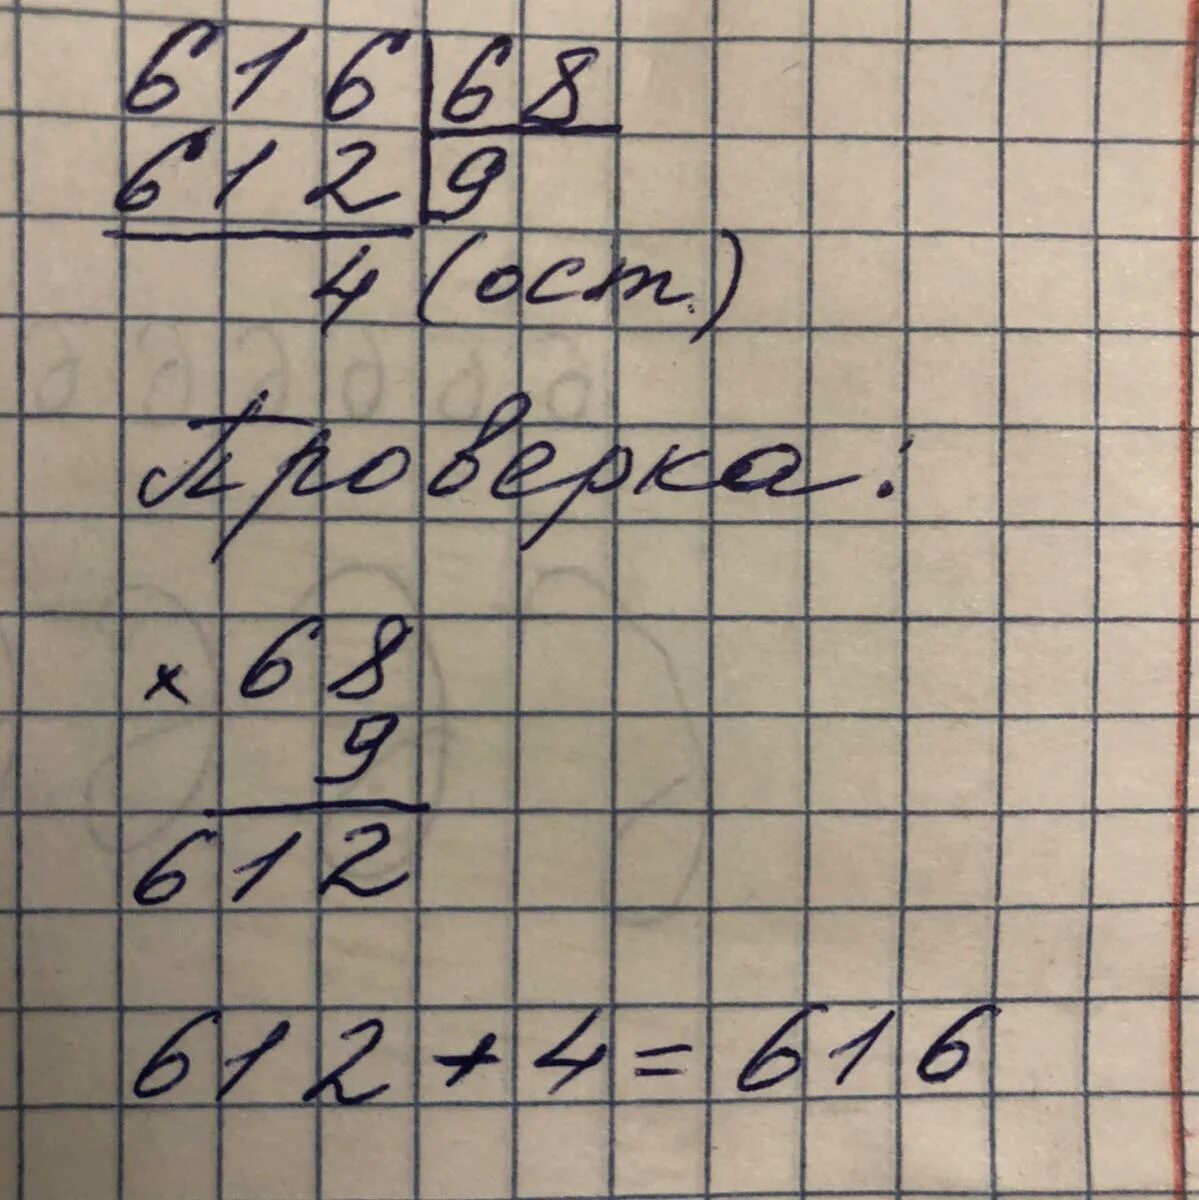 616 | 68
612 | 9
4 (ост.)
Проверка:
× 68
9
612
612 + 4 = 616